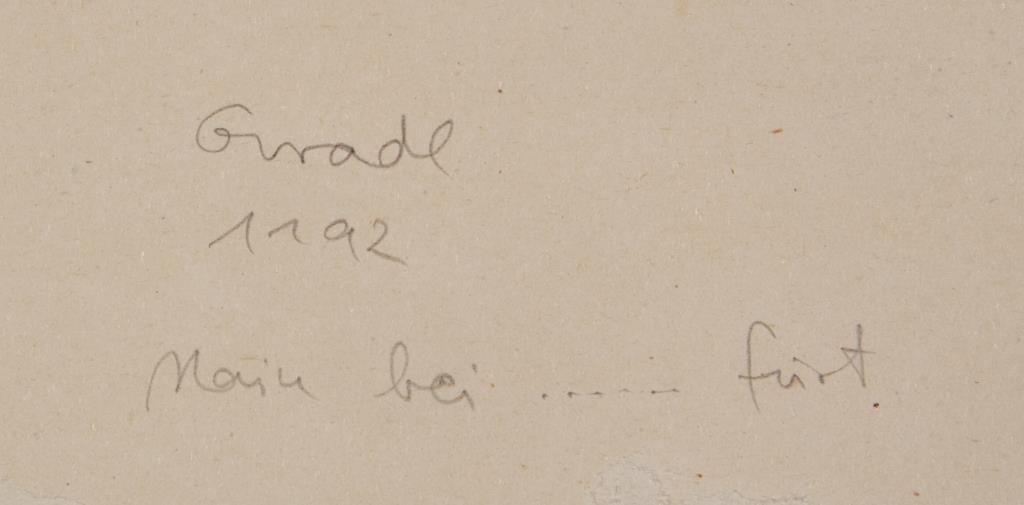 Gradl
1192
Main bei ...... furt